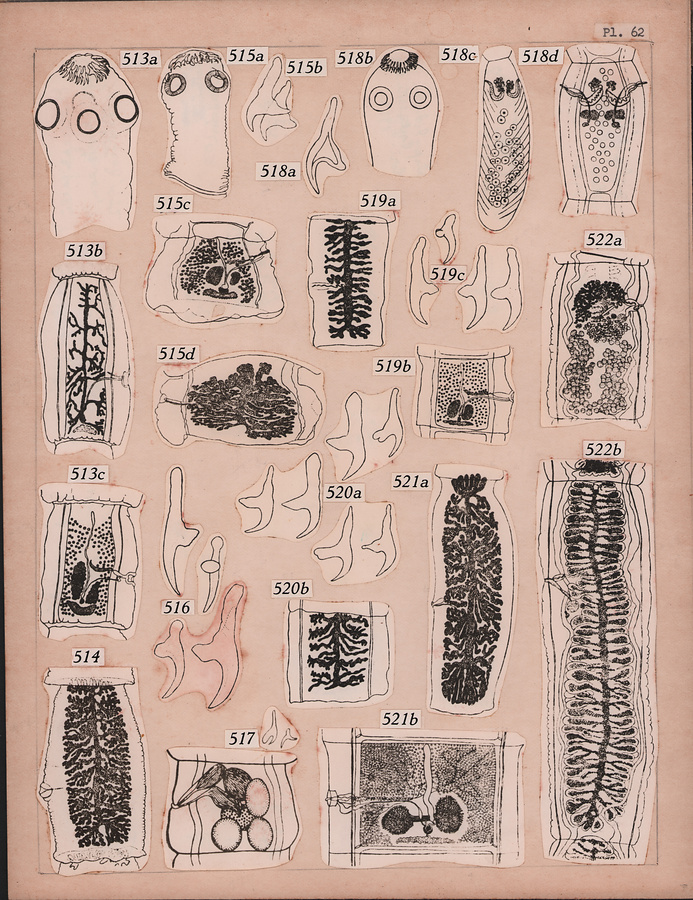 Pl. 62
513a
515a
515b
518b
518c
518d
518a
515c
519a
513b
519c
522a
515d
519b
513c
520a
521a
522b
516
520b
514
517
521b